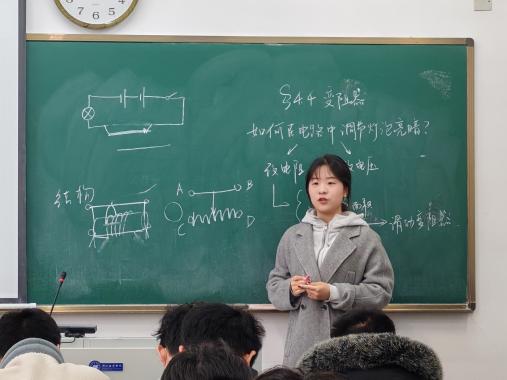 §4.4 变阻器
如何在电路中调节灯泡亮暗?
改电阻 电压
结构
A B
C D
面积
滑动变阻器
6 5